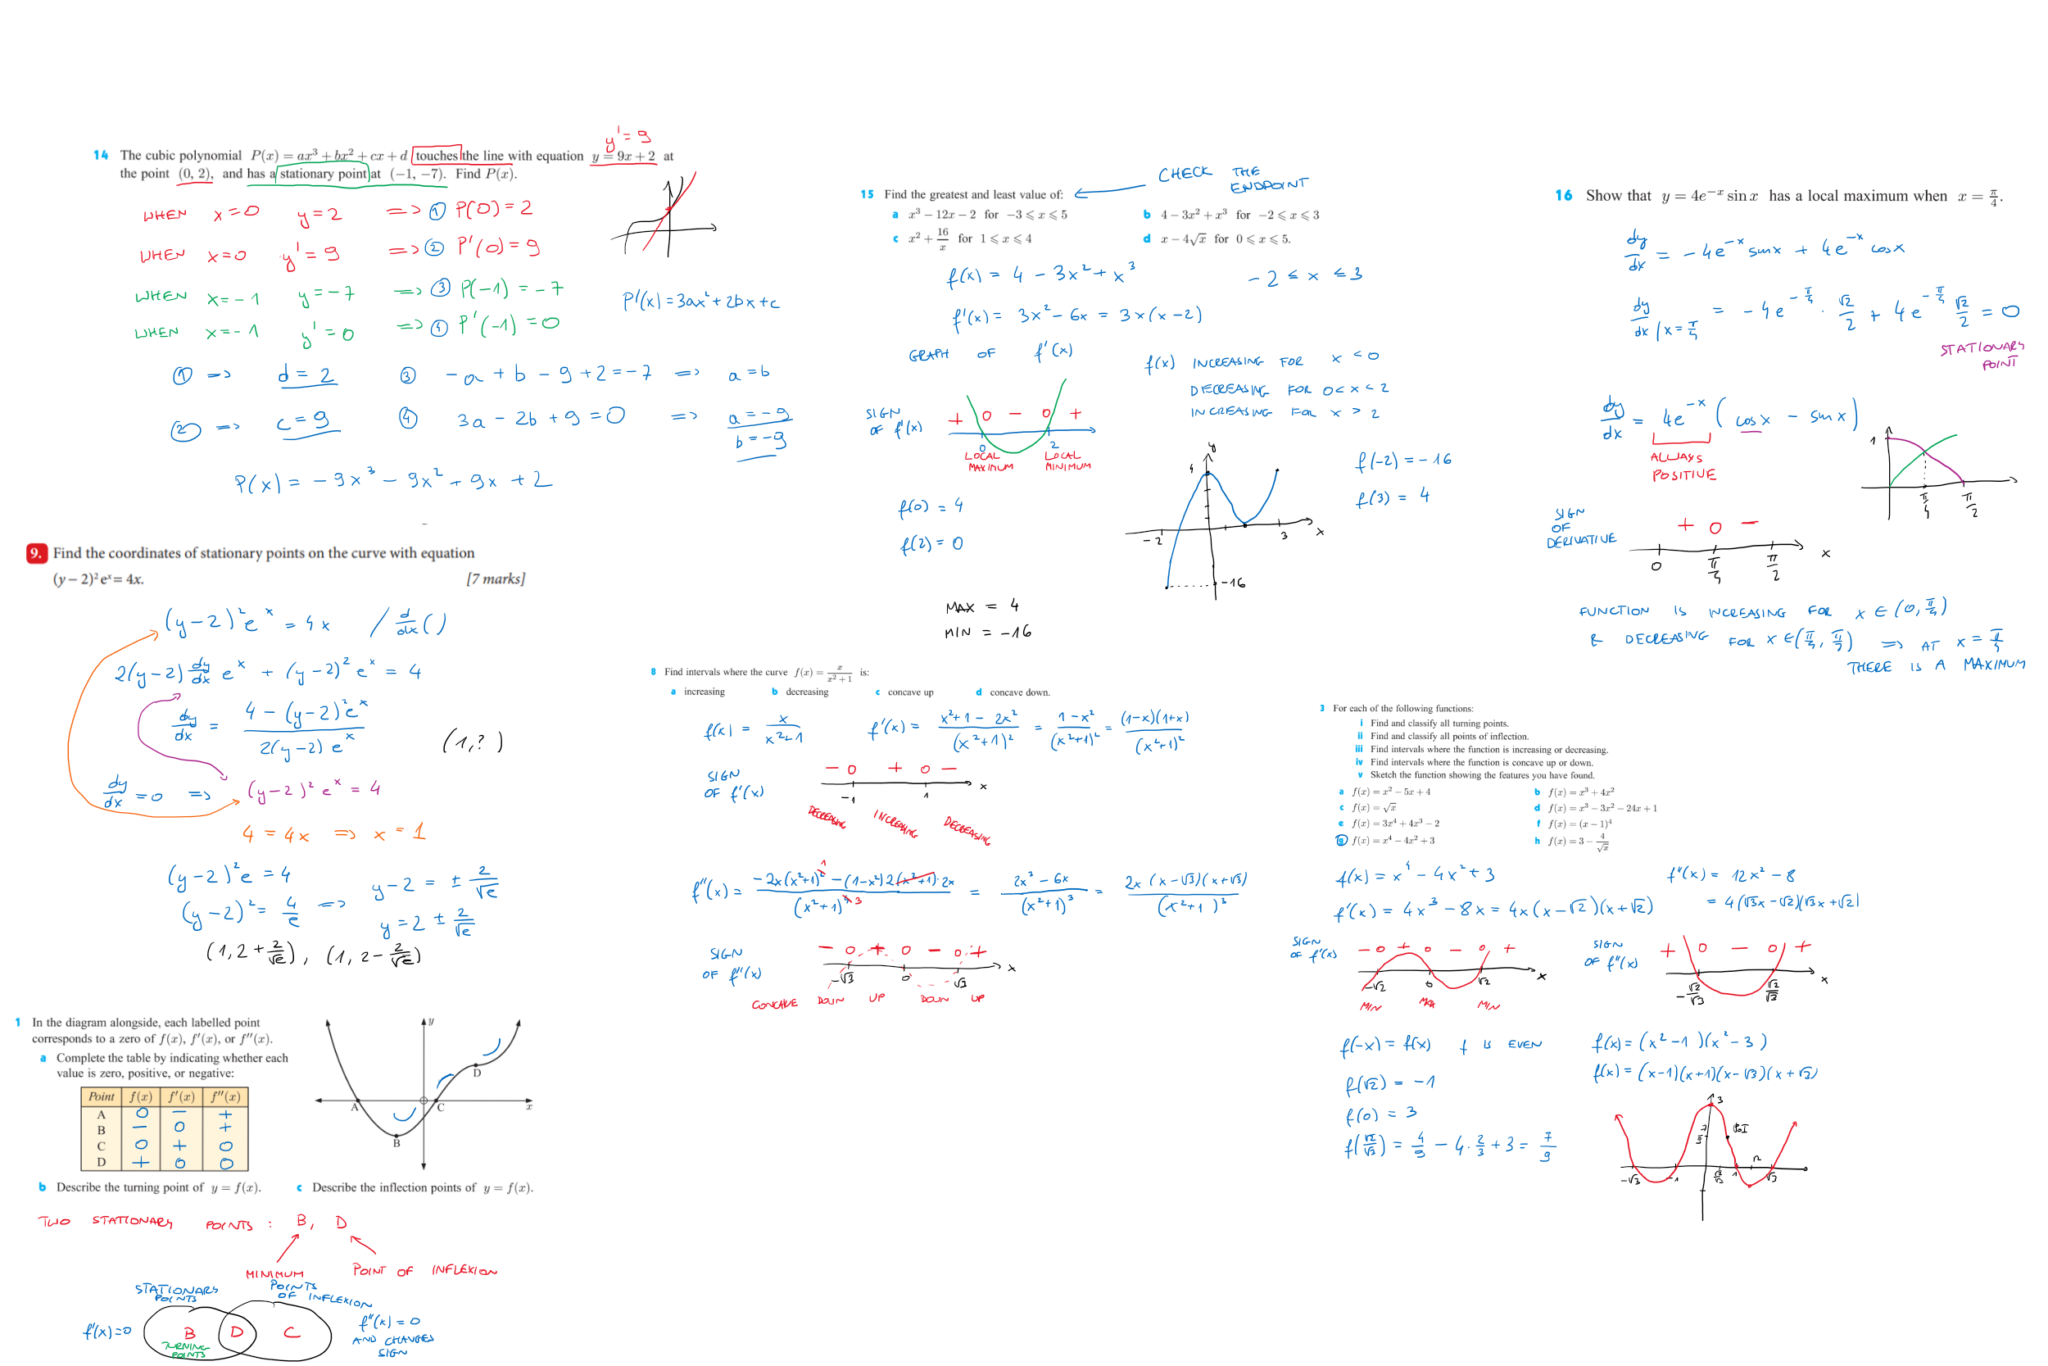 14 The cubic polynomial P(x) = ax³ + bx² + cx + d touches the line with equation y = 9x + 2 at
the point (0, 2), and has a stationary point at (−1, −7). Find P(x).
y' = 9
WHEN x=0 y=2 => ① P(0)=2
WHEN x=0 y'=9 => ② P'(0)=9
WHEN x=-1 y=-7 => ③ P(-1)=-7
WHEN x=-1 y'=0 => ④ P'(-1)=0
P'(x)=3ax²+2bx+c
① => d=2 ③ -a+b-9+2=-7 => a=b
② => c=9 ④ 3a-2b+9=0 => a=-9
b=-9
P(x) = -9x³ - 9x² + 9x + 2
9. Find the coordinates of stationary points on the curve with equation
(y − 2)²eˣ = 4x. [7 marks]
(y-2)²eˣ = 4x / d/dx ( )
2(y-2) dy/dx eˣ + (y-2)² eˣ = 4
dy/dx = (4-(y-2)²eˣ)/(2(y-2)eˣ) (1,?)
dy/dx = 0 => (y-2)² eˣ = 4
4 = 4x => x = 1
(y-2)²e = 4
(y-2)² = 4/e => y-2 = ± 2/√e
y = 2 ± 2/√e
(1, 2+2/√e), (1, 2-2/√e)
1 In the diagram alongside, each labelled point
corresponds to a zero of f(x), f'(x), or f''(x).
a Complete the table by indicating whether each
value is zero, positive, or negative:
Point f(x) f'(x) f''(x)
A 0 − +
B − 0 +
C 0 + 0
D + 0 0
y
A B C D x
b Describe the turning point of y = f(x). c Describe the inflection points of y = f(x).
TWO STATIONARY POINTS : B, D
MINIMUM POINT OF INFLEXION
STATIONARY POINTS POINTS OF INFLEXION
f'(x)=0 B D C f''(x)=0
TURNING POINTS AND CHANGES SIGN
15 Find the greatest and least value of: CHECK THE ENDPOINT
a x³ − 12x − 2 for −3 ⩽ x ⩽ 5 b 4 − 3x² + x³ for −2 ⩽ x ⩽ 3
c x² + 16/x for 1 ⩽ x ⩽ 4 d x − 4√x for 0 ⩽ x ⩽ 5.
f(x) = 4 - 3x² + x³ -2 ≤ x ≤ 3
f'(x) = 3x² - 6x = 3x(x-2)
GRAPH OF f'(x)
f(x) INCREASING FOR x<0
DECREASING FOR 0<x<2
INCREASING FOR x>2
SIGN OF f'(x) + 0 − 0 +
0 2
LOCAL MAXIMUM LOCAL MINIMUM
f(0) = 4
f(2) = 0
y 4 -2 3 x -16
f(-2) = -16
f(3) = 4
MAX = 4
MIN = -16
8 Find intervals where the curve f(x) = x/(x² + 1) is:
a increasing b decreasing c concave up d concave down.
f(x) = x/(x²+1) f'(x) = (x²+1-2x²)/(x²+1)² = (1-x²)/(x²+1)² = (1-x)(1+x)/(x²+1)²
SIGN OF f'(x) − 0 + 0 −
-1 1 x
DECREASING INCREASING DECREASING
f''(x) = (-2x(x²+1)² -(1-x²)2(x²+1)·2x)/(x²+1)⁴ 1 3 = (2x³-6x)/(x²+1)³ = 2x(x-√3)(x+√3)/(x²+1)³
SIGN OF f''(x) − 0 + 0 − 0 +
-√3 0 √3 x
CONCAVE DOWN UP DOWN UP
16 Show that y = 4e⁻ˣ sin x has a local maximum when x = π/4.
dy/dx = -4e⁻ˣ sinx + 4e⁻ˣ cosx
dy/dx | x=π/4 = -4e^(-π/4) · √2/2 + 4e^(-π/4) √2/2 = 0
STATIONARY POINT
dy/dx = 4e⁻ˣ (cosx - sinx)
ALWAYS POSITIVE
1 π/4 π/2
SIGN OF DERIVATIVE + 0 −
0 π/4 π/2 x
FUNCTION IS INCREASING FOR x ∈ (0, π/4)
& DECREASING FOR x ∈ (π/4, π/2) => AT x = π/4
THERE IS A MAXIMUM
3 For each of the following functions:
i Find and classify all turning points.
ii Find and classify all points of inflection.
iii Find intervals where the function is increasing or decreasing.
iv Find intervals where the function is concave up or down.
v Sketch the function showing the features you have found.
a f(x) = x² − 5x + 4 b f(x) = x³ + 4x²
c f(x) = √x d f(x) = x³ − 3x² − 24x + 1
e f(x) = 3x⁴ + 4x³ − 2 f f(x) = (x − 1)⁴
g f(x) = x⁴ − 4x² + 3 h f(x) = 3 − 4/√x
f(x) = x⁴ - 4x² + 3 f''(x) = 12x² - 8
f'(x) = 4x³ - 8x = 4x(x-√2)(x+√2) = 4(√3x-√2)(√3x+√2)
SIGN OF f'(x) − 0 + 0 − 0 +
-√2 0 √2 x
MIN MAX MIN
SIGN OF f''(x) + 0 − 0 +
-√2/√3 √2/√3 x
f(-x) = f(x) f IS EVEN
f(x) = (x²-1)(x²-3)
f(√2) = -1
f(0) = 3
f(√2/√3) = 4/9 - 4·2/3 + 3 = 7/9
3 PoI
-√3 -1 1 √2 √3